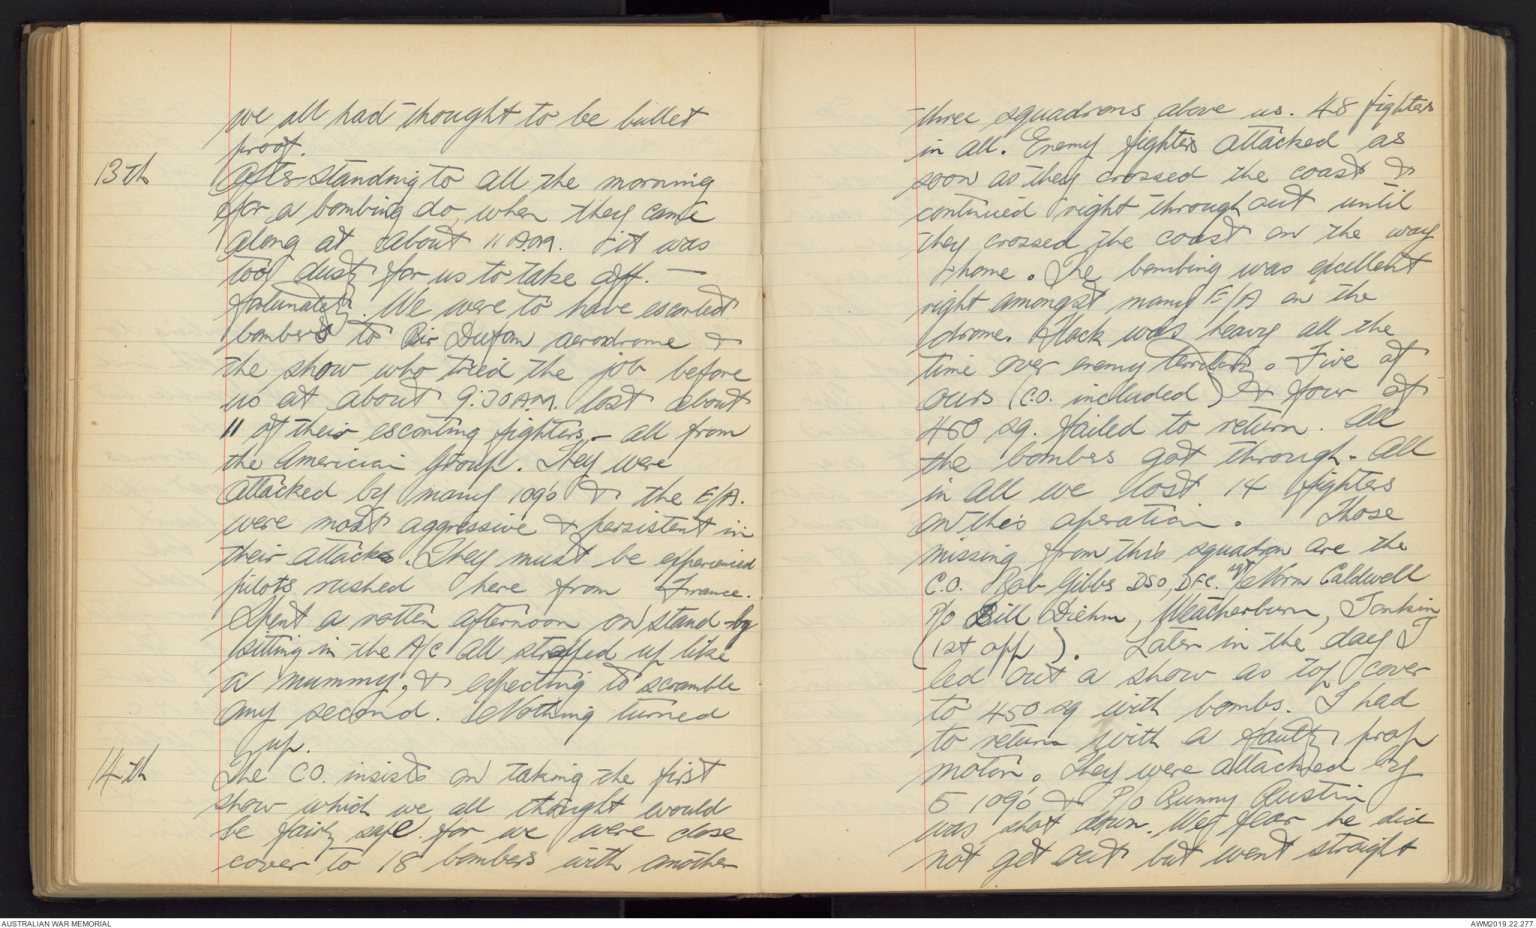 we all had thought to be bullet
proof.
13th After standing to all the morning
for a bombing do, when they came
along at about 11 AM. it was
too dusty for us to take off. —
fortunately. We were to have escorted
bombers to Bir Dufan aerodrome &
the show who tried the job before
us at about 9.30 AM. lost about
11 of their escorting fighters, - all from
the American Group. They were
attacked by many 109's & the E/A.
were most aggressive & persistent in
their attacks. They must be experienced
pilots rushed here from France.
Spent a rotten afternoon on stand-by
sitting in the A/C all strapped up like
a mummy, & expecting to scramble
any second. Nothing turned
up.
14th The C.O. insists on taking the first
show which we all thought would
be fairly safe. for we were close
cover to 18 bombers with another
three squadrons above us. 48 fighters
in all. Enemy fighters attacked as
soon as they crossed the coast &
continued right throughout until
they crossed the coast on the way
home. The bombing was excellent
right amongst many E/A on the
drome. Flack was heavy all the
time over enemy territory. Five of
ours (C.O. included) & four of
450 sq. failed to return. All
the bombers got through. All
in all we lost 14 fighters
on this operation. Those
missing from this squadron are the
C.O. Bob Gibbs DSO, DFC, Sgt Norm Caldwell
P/O Bill Diehm, Weatherburn, Tonkin
(1st op). Later in the day I
led out a show as top cover
to 450 sq with bombs. I had
to return with a faulty prop
motor. They were attacked by
5 109's & P/O Bunny Austin
was shot down. We fear he did
not get out but went straight
AUSTRALIAN WAR MEMORIAL
AWM2019.22.277